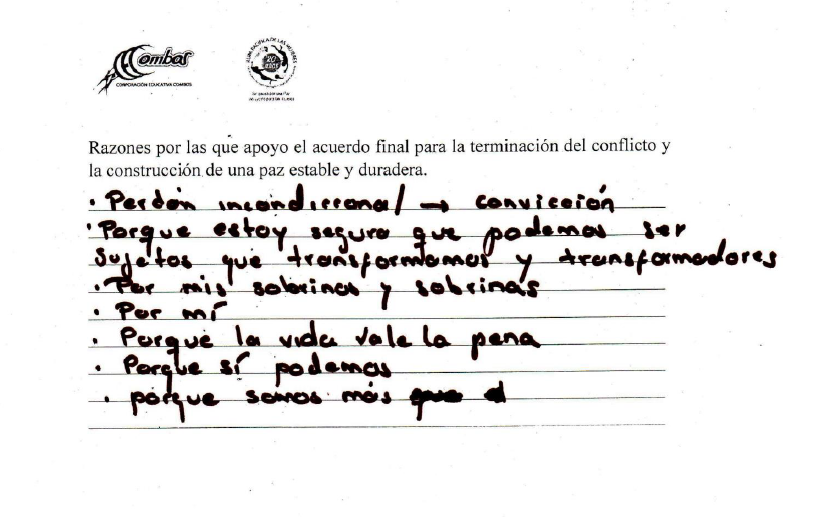 Combos
CORPORACIÓN EDUCATIVA COMBOS
20
AÑOS
Razones por las que apoyo el acuerdo final para la terminación del conflicto y
la construcción de una paz estable y duradera.
• Perdón incondicional → convicción
• Porque estoy segura que podemos ser
sujetos que transformamos y transformadores
• Por mis sobrinos y sobrinas
• Por mí
• Porque la vida vale la pena
• Porque sí podemos
• porque somos más